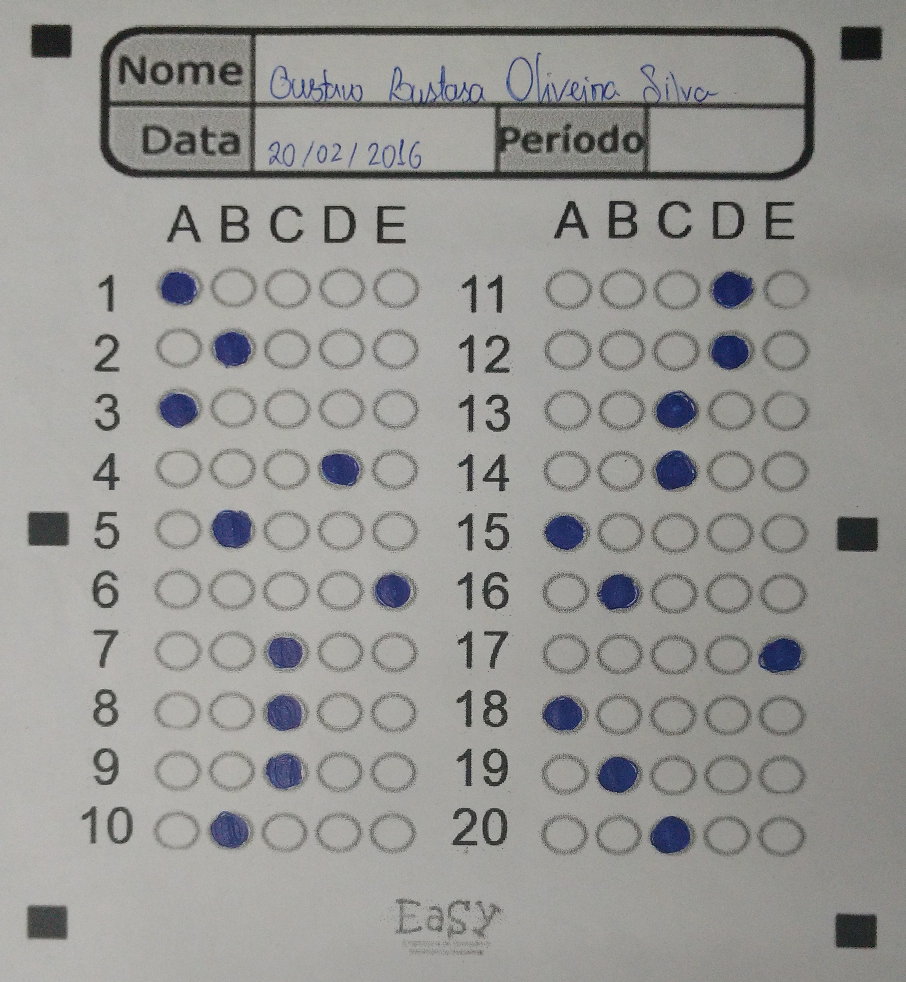 Nome Gustavo Bustosa Oliveira Silva
Data 20/02/2016 Período
A B C D E
1
2
3
4
5
6
7
8
9
10
A B C D E
11
12
13
14
15
16
17
18
19
20
EaSY